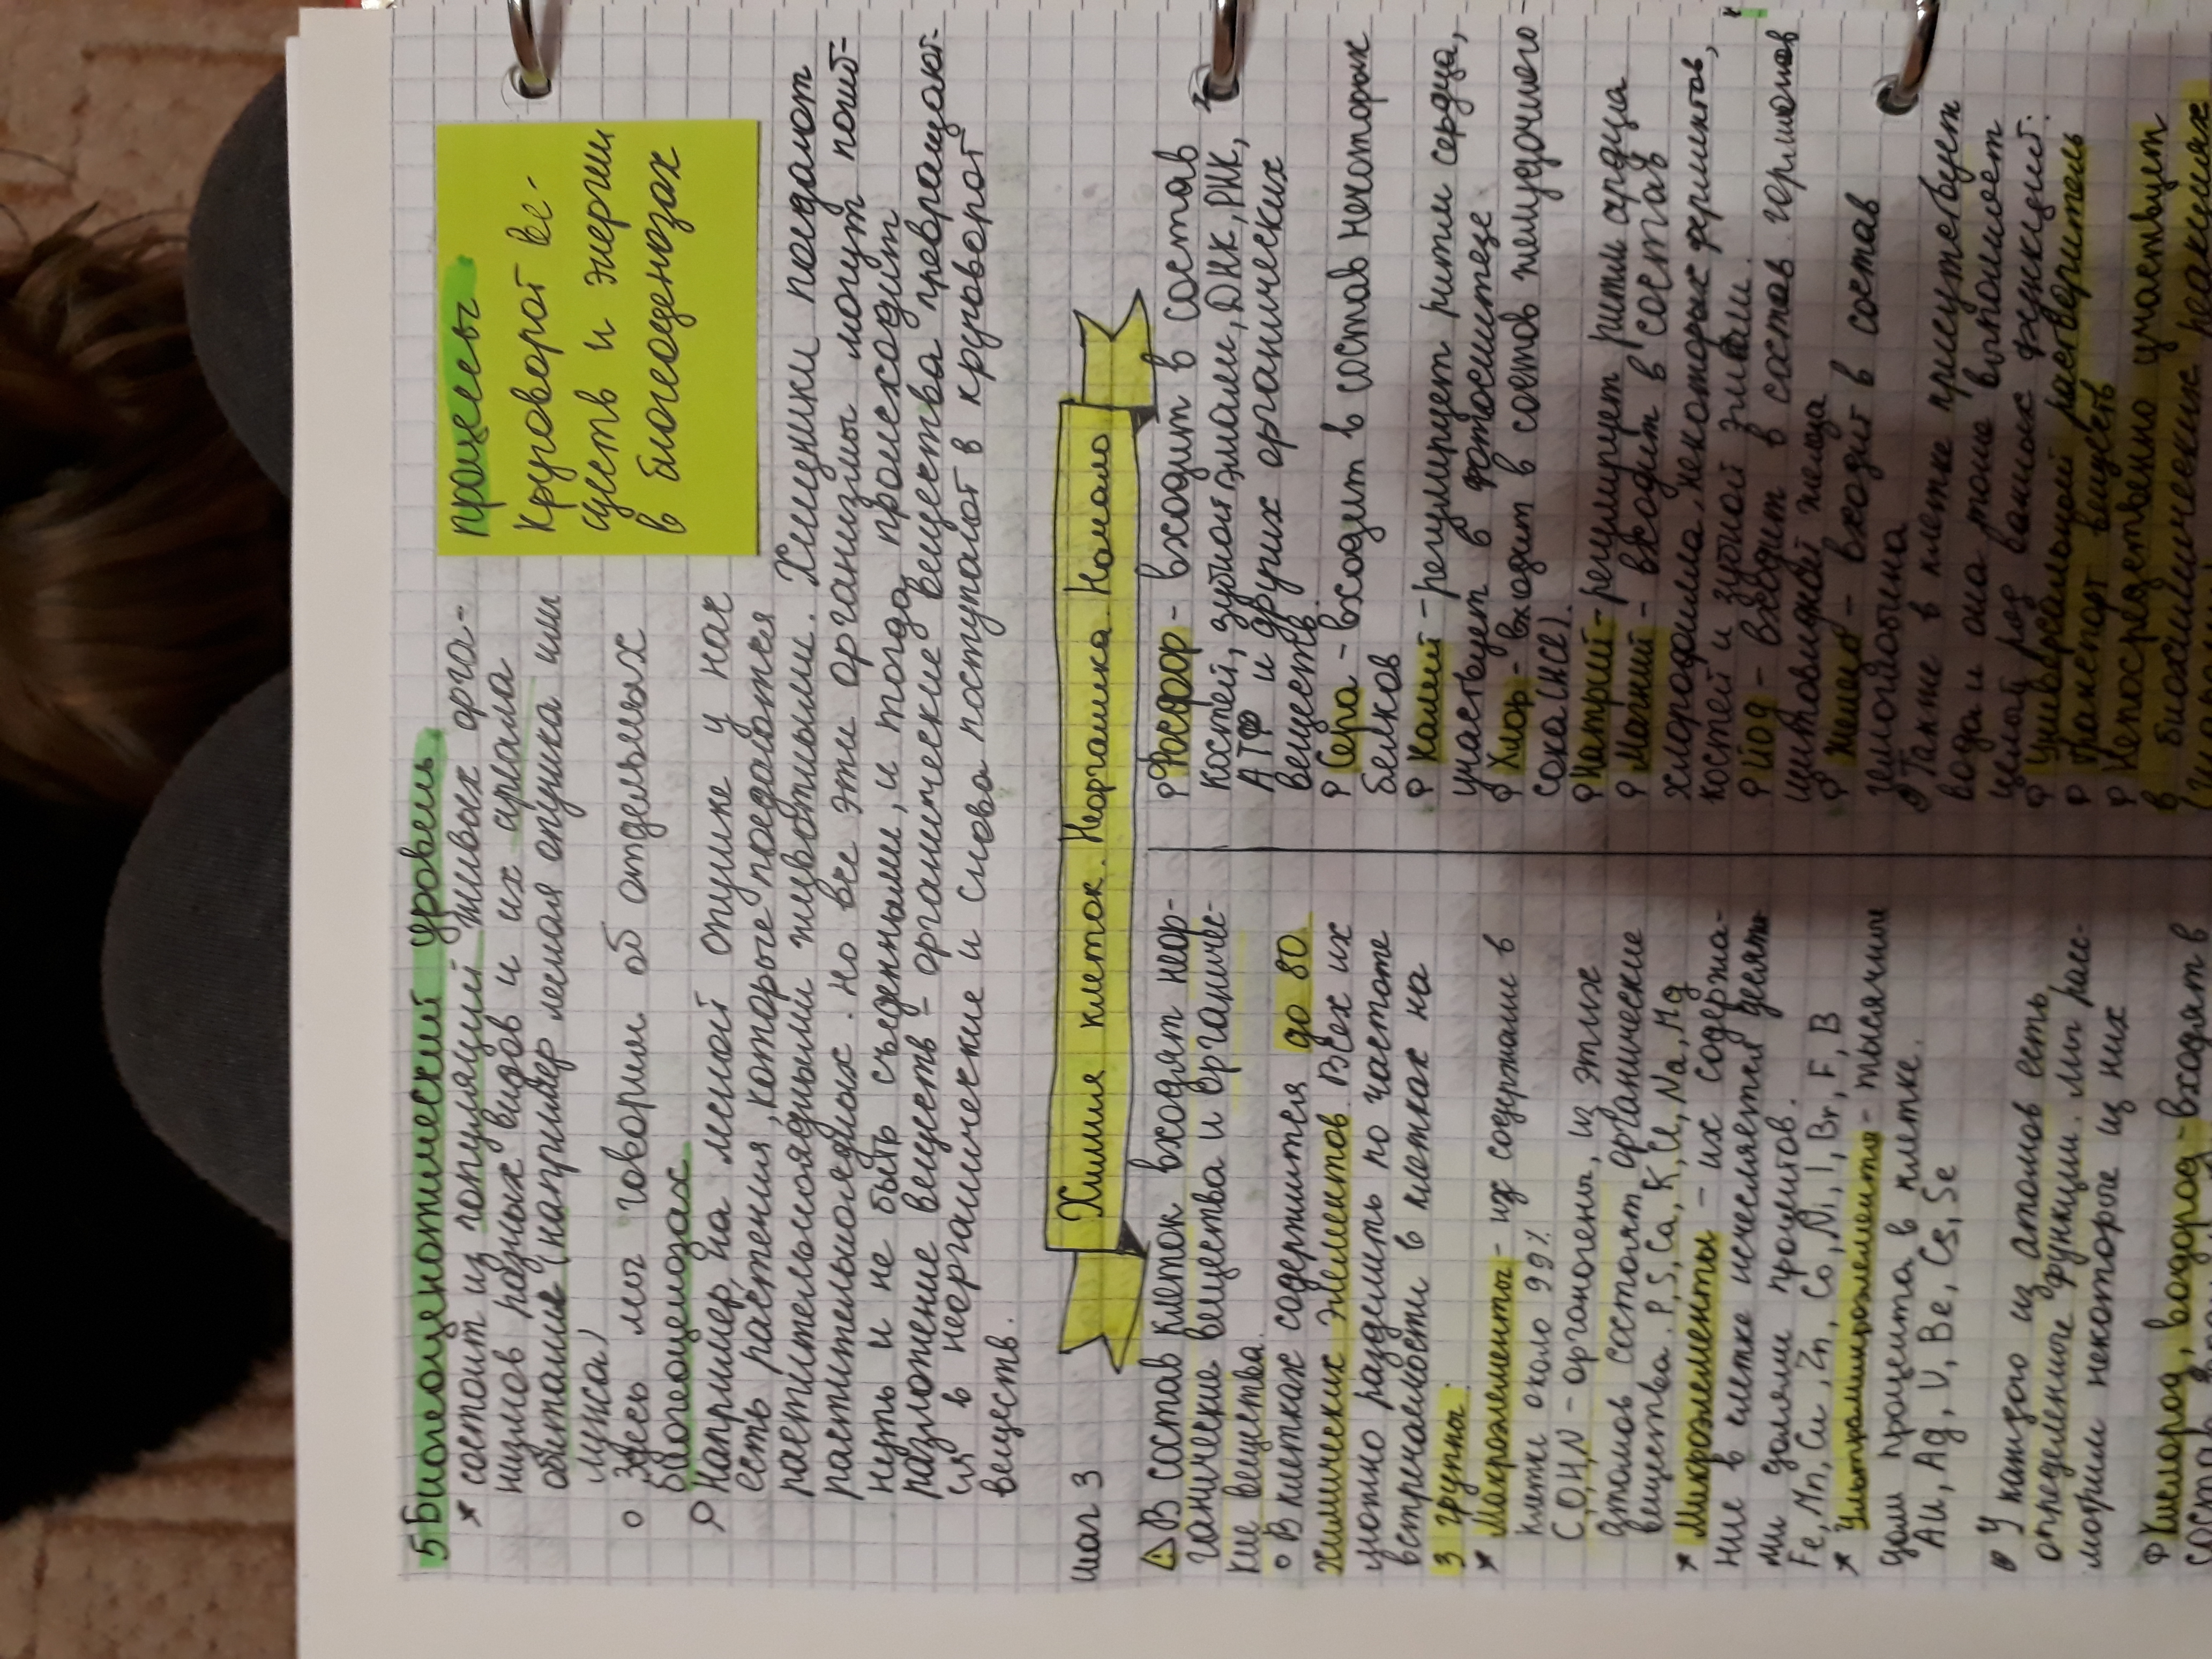 5 Биогеоценотический уровень
* состоит из популяций живых орга-
низмов разных видов и их ареала
обитания (например лесная опушка или
лужа)
о Здесь мы говорим об отдельных
биогеоценозах
Например, на лесной опушке у нас
есть растения, которые поедаются
растительноядными животными. Хищники поедают
растительноядных. Но все эти организмы могут погиб-
нуть и не быть съеденными, и тогда происходит
разложение веществ - органические вещества превращают-
ся в неорганические и снова поступают в круговорот
веществ.
процессы
Круговорот ве-
ществ и энергии
в биогеоценозах
шаг 3
Химия клеток. Неорганика. Начало
В состав клеток входят неор-
ганические вещества и органичес-
кие вещества.
о В клетках содержится до 80
химических элементов. Всех их
можно разделить по частоте
встречаемости в клетках на
3 группы.
* Макроэлементы - их содержание в
клетке около 99%
C, O, H, N - органогены, из этих
атомов состоят органические
вещества. P, S, Ca, K, Cl, Na, Mg
* Микроэлементы - их содержа-
ние в клетке исчесляется десяты
ми долями процентов.
Fe, Mn, Cu, Zn, Co, Ni, I, Br, F, B
* Ультрамикроэлементы - тысячные
доли процента в клетке.
Au, Ag, U, Be, Cs, Se
У каждого из атомов есть
определенные функции. Мы рас-
мотрим некоторые из них
Кислород, водород - входят в
Фосфор - входит в состав
костей, зубной эмали, ДНК, РНК,
АТФ и других органических
веществ.
Сера - входит в состав некоторых
белков
Калий - регулирует ритм сердца,
участвует в фотосинтезе
Хлор - входит в состав желудочного
сока (HCl).
Натрий - регулирует ритм сердца
Магний - входит в состав
хлорофилла, некоторых ферментов,
костей и зубной эмали.
Йод - входит в состав гормонов
щитовидной железы
Железо - входит в состав
гемоглобина
Также в клетке присутствует
вода и она тоже выполняет
целый ряд важных функций:
Универсальный растворитель
Транспорт веществ
Непосредственно участвует
в биохимических реакциях